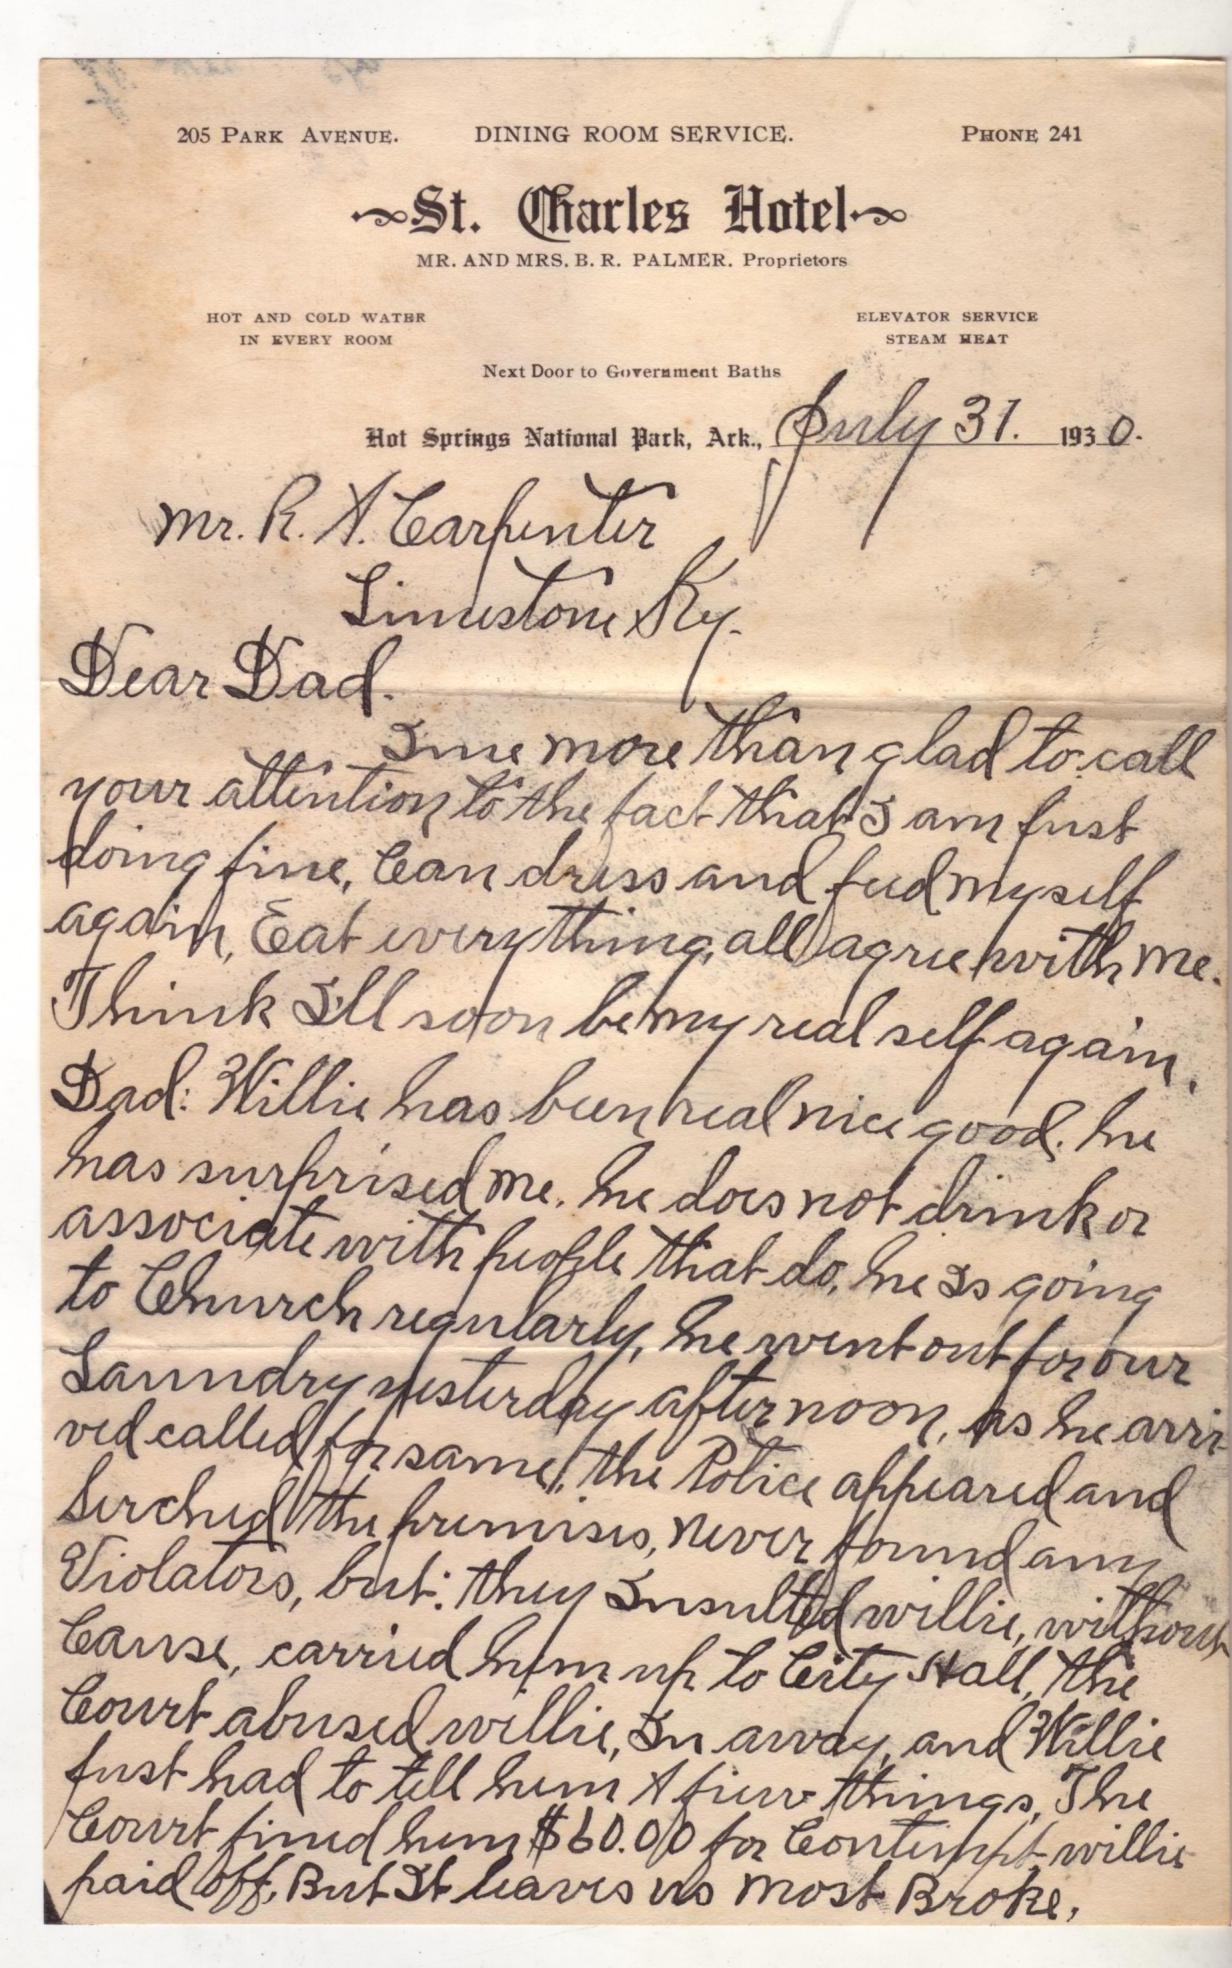 205 PARK AVENUE. DINING ROOM SERVICE. PHONE 241
St. Charles Hotel
MR. AND MRS. B. R. PALMER. Proprietors
HOT AND COLD WATER
IN EVERY ROOM
ELEVATOR SERVICE
STEAM HEAT
Next Door to Government Baths
Hot Springs National Park, Ark., July 31. 1930.
Mr. R. A. Carpenter
Limestone Ky.
Dear Dad.
I me more than glad to call
your attention to the fact that I am just
doing fine, Can dress and feed myself
again, Eat everything, all agree with me.
Think I'll soon be my real self again.
Dad: Willie has been real nice good. he
has surprised me. he does not drink or
associate with people that do, he Is going
to Church regularly, he went out for our
Laundry yesterday afternoon, as he arri
ved called for same, the Police appeared and
Serched the premises, never found any
Violators, but: they Insulted willie, without
Cause, carried him up to City Hall, the
Court abused willie, In away, and Willie
just had to tell him A fiew things, The
Court fined him $60.00 for Contempt willie
paid off, But It leaves us most Broke,